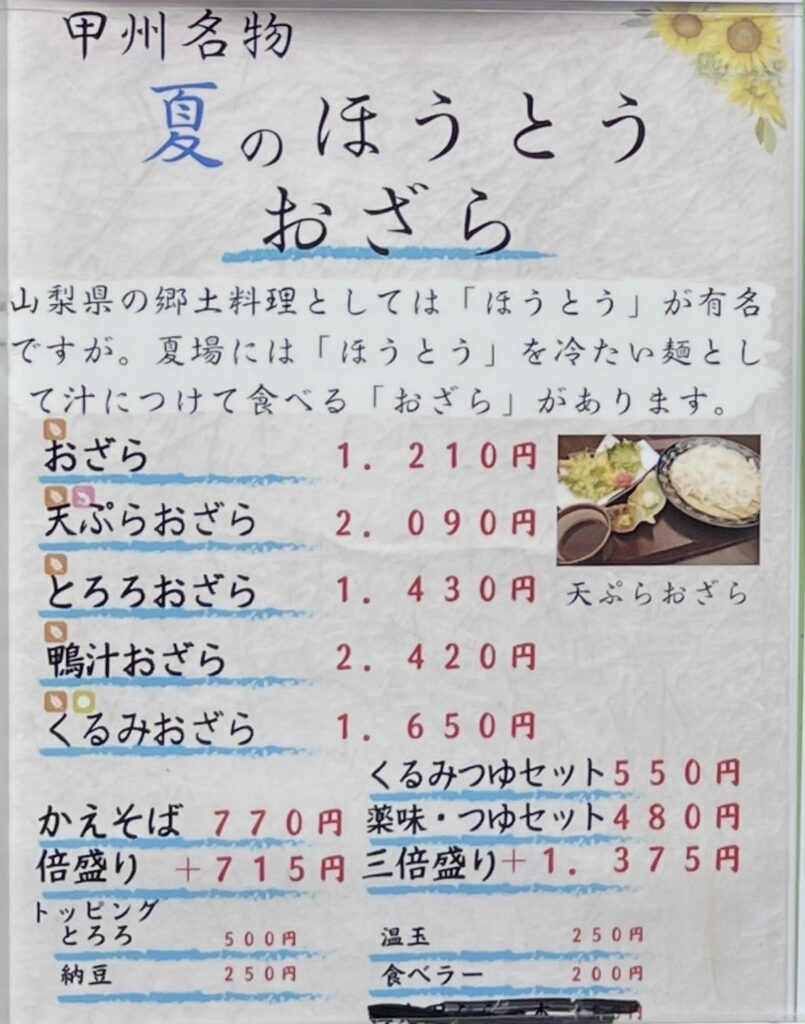 甲州名物
夏のほうとう
おざら
山梨県の郷土料理としては「ほうとう」が有名
ですが。夏場には「ほうとう」を冷たい麺とし
て汁につけて食べる「おざら」があります。
おざら 1.210円
天ぷらおざら 2.090円
とろろおざら 1.430円
天ぷらおざら
鴨汁おざら 2.420円
くるみおざら 1.650円
くるみつゆセット550円
かえそば 770円 薬味・つゆセット480円
倍盛り +715円 三倍盛り+1.375円
トッピング
とろろ 500円 温玉 250円
納豆 250円 食べラー 200円